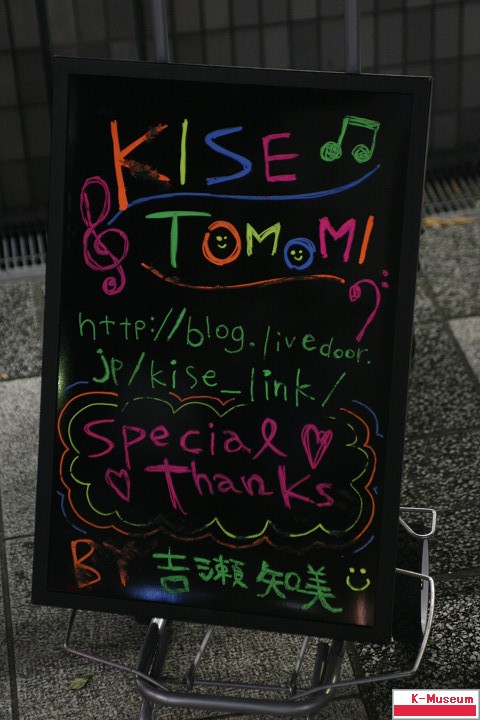 KISE
TOMOMI
http://blog.livedoor.
jp/kise_link/
Special
Thanks
BY 吉瀬 知美
K-Museum